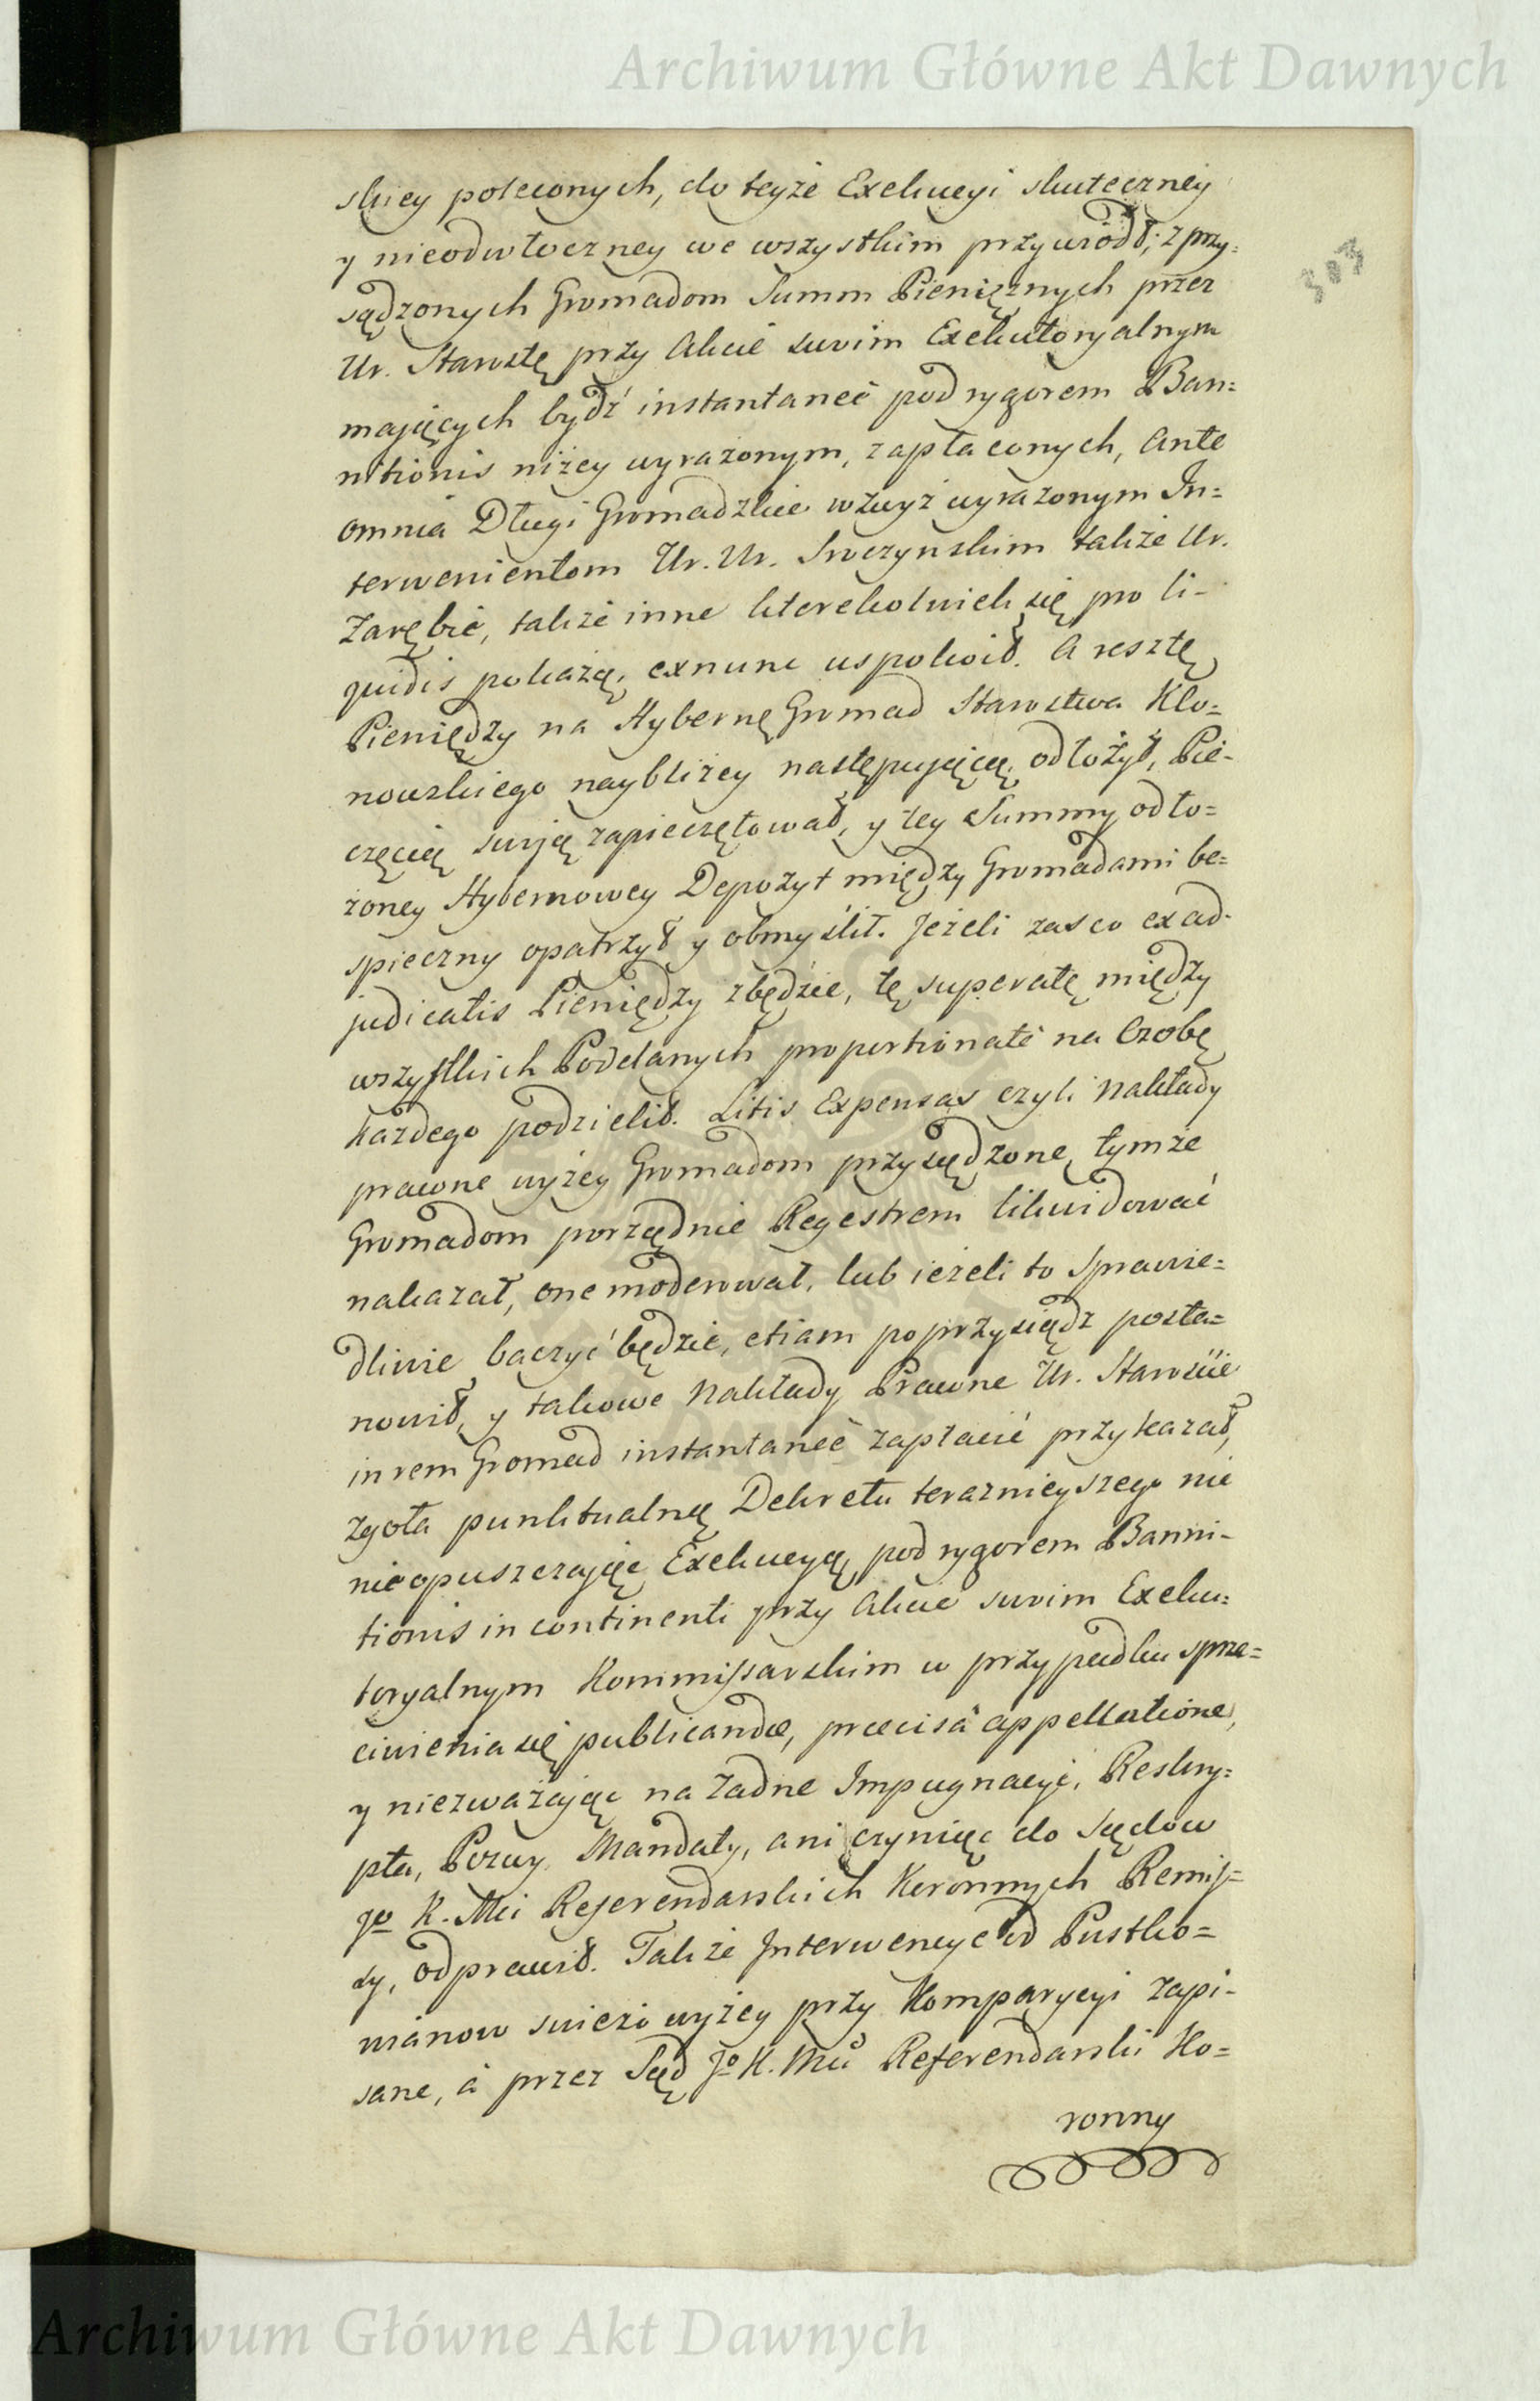 Archiwum Główne Akt Dawnych
303
skiey poleconych, do teyże Exekucyi skuteczney
y nieodwłoczney we wszystkim przywiódł; z przy=
sądzonych Gromadom Summ Pieniężnych przez
Ur. Starostę przy Akcie swoim Exekutoryalnym
mających bydź instantaneè pod rygorem Ban=
nitionis niżey wyrażonym, zapłaconych, Ante
omnia Długi Gromadzkie wzwyż wyrażonym In=
terwenientom Ur. Ur. Sroczynskim także Ur.
Zarębie, także inne którekolwiek się pro li-
quidis pokażą, exnunc uspokoił. A resztę
Pieniędzy na Hybernę Gromad Starostwa Klo=
nowskiego naybliżey następującą odłożył, Pie-
częcią swoją zapieczętował, y tey Summy odło=
żoney Hybernowey Depozyt między Gromadami be=
spieczny opatrzył y obmyślił. Jeżeli zas co ex ad-
judicatis Pieniędzy zbędzie, tę superatę między
wszystkich Poddanych proportionatè na Osobę
każdego podzielił. Litis Expensas czyli Nakłady
prawne wyżey Gromadom przysądzone, tymże
Gromadom porządnie Regestrem likwidować
nakazał, one moderował, lub ieżeli to Sprawie=
dliwie baczyć będzie, etiam poprzysiądz posta=
nowił, y takowe Nakłady Prawne Ur. Staroście
in rem Gromad instantaneè zapłacić przykazał,
zgoła punktualną Dekretu teraznieyszego nic
nieopuszczając Exekucyą, pod rygorem Banni-
tionis in continenti przy Akcie swoim Exeku=
toryalnym Kommissarskim w przypadku sprze=
ciwienia się publicandæ, præcisâ appellatione,
y niezważając na żadne Impugnacye, Reskry=
pta, Pozwy, Mandaty, ani czyniąc do Sądow
Jo K. Mci Referendarskich Koronnych Remis=
sy, odprawił. Także Interwencye od Pustko=
wianow swieżo wyżey przy Komparycyi zapi-
sane, à przez Sąd Jo K. Mci Referendarski Ko=
ronny
Archiwum Główne Akt Dawnych